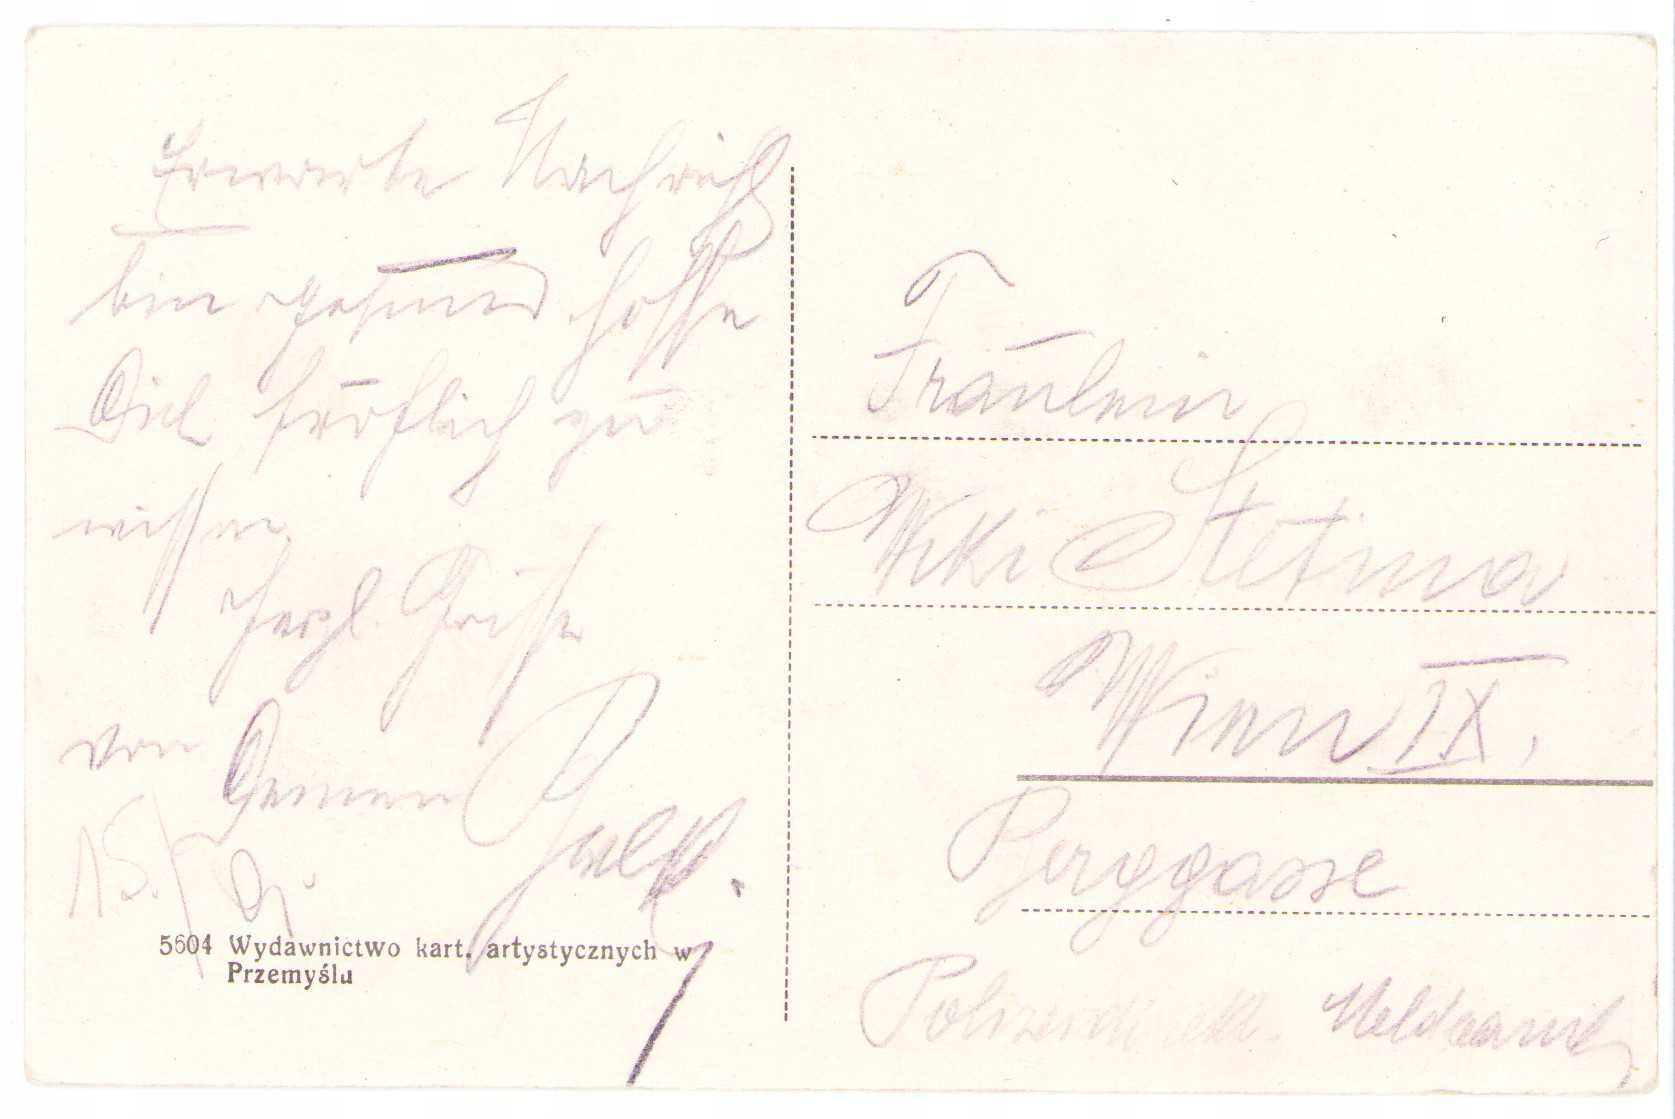 Erwarte Nachricht
bin gesund hoffe
Dich fröhlich zu
wissen.
Herzl. Grüße
von Deinem
15./
5604 Wydawnictwo kart. artystycznych w
Przemyślu
Fräulein
Wiki Stetina
Wien IX.
Berggasse
Polizeidirekt. Meldeamt